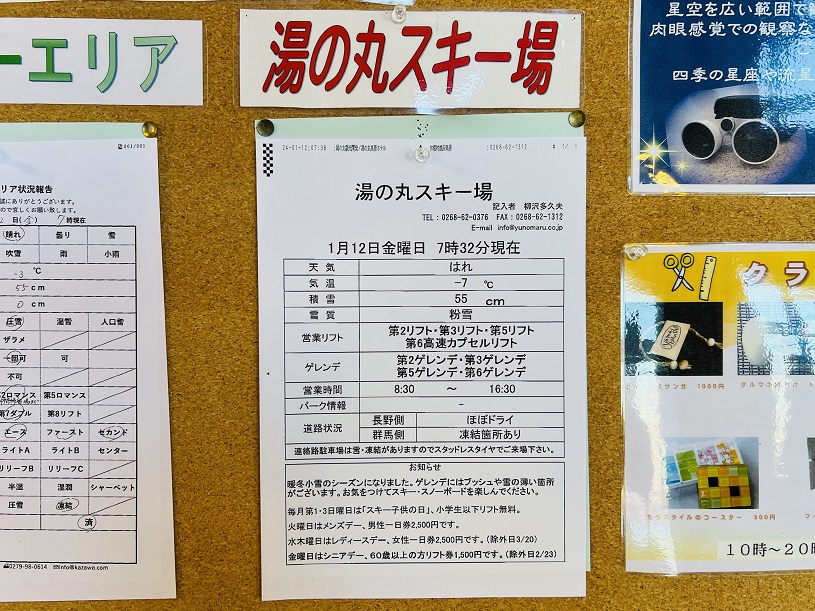 ーエリア
001/001
リア状況報告
誠にありがとうございます。
ので宜しくお願い致します。
日(金) 7時現在
晴れ 曇り 雪
吹雪 雨 小雨
-3 ℃
55cm
0 cm
圧雪 湿雪 人口雪
ザラメ
一部可 可
不可
第2ロマンス 第5ロマンス
第7ダブル 第8リフト
エース ファースト セカンド
ライトA ライトB センター
リリーフB リリーフC
半湿 湿潤 シャーベット
圧雪 凍結
済
☎0279-98-0614 ✉info@kazawa.com
湯の丸スキー場
24-01-12;07:38 ;0268-62-1312 # 1/ 1
湯の丸スキー場
記入者 柳沢多久夫
TEL：0268-62-0376 FAX：0268-62-1312
E-mail info@yunomaru.co.jp
1月12日金曜日 7時32分現在
天気 はれ
気温 -7 ℃
積雪 55 cm
雪質 粉雪
営業リフト 第2リフト・第3リフト・第5リフト
第6高速カプセルリフト
ゲレンデ 第2ゲレンデ・第3ゲレンデ
第5ゲレンデ・第6ゲレンデ
営業時間 8:30 ～ 16:30
パーク情報 -
道路状況 長野側 ほぼドライ
群馬側 凍結箇所あり
連絡路駐車場は雪・凍結がありますのでスタッドレスタイヤでご来場下さい。
お知らせ
暖冬小雪のシーズンになりました。ゲレンデにはブッシュや雪の薄い箇所
がございます。お気をつけてスキー・スノーボードを楽しんでください。
毎月第1・3日曜日は「スキー子供の日」、小学生以下リフト無料。
火曜日はメンズデー、男性一日券2,500円です。
水木曜日はレディースデー、女性一日券2,500円です。（除外日3/20）
金曜日はシニアデー、60歳以上の方リフト券1,500円です。（除外日2/23）
星空を広い範囲で
肉眼感覚での観察な
四季の星座や流星
クラ
ミサンガ 1000円
ダルマの
スタイルのコースター 300円
10時～20時